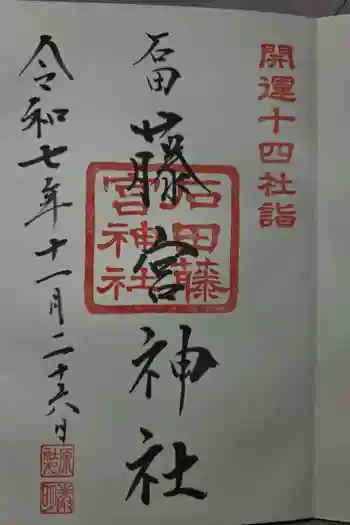 開運十四社詣
石田
藤宮神社
石田藤
宮神社
令和七年十一月二十六日